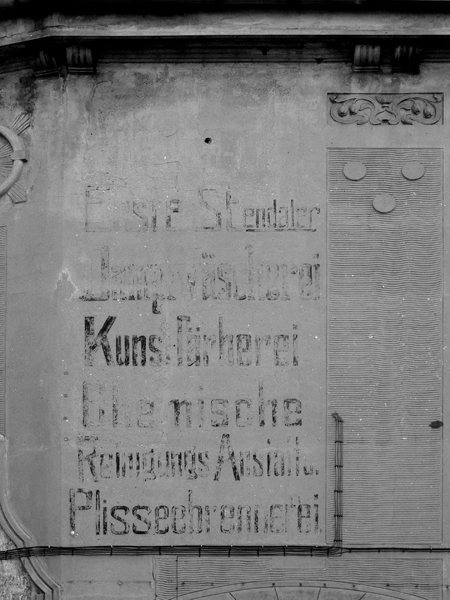 Erste Stendaler
Dampfwäscherei
Kunstfärberei
Chemische
Reinigungs Anstalt u.
Plisseebrennerei